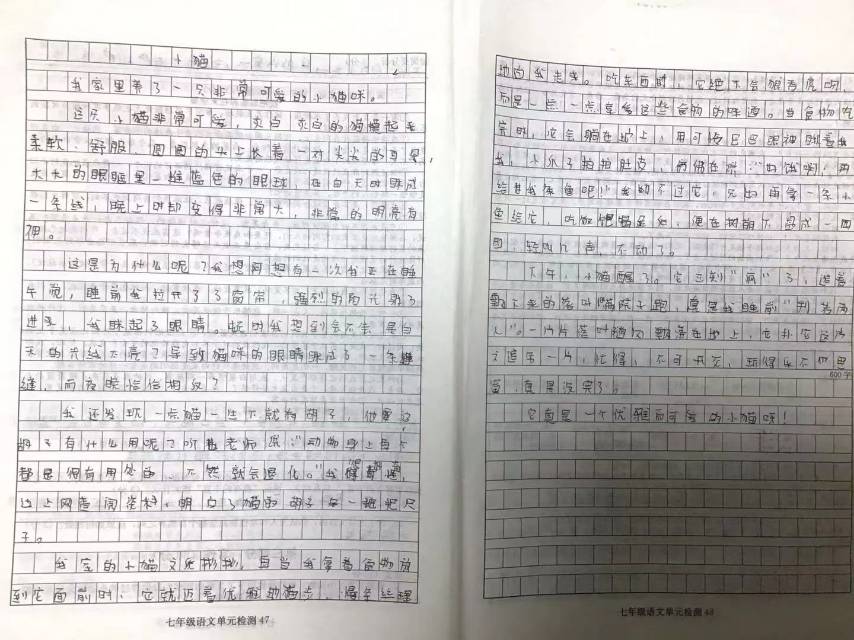 小猫
我家里养了一只非常可爱的小猫咪。
这只小猫非常可爱,灰白灰白的猫摸起来
柔软、舒服,圆圆的头上长着一对尖尖的耳朵,
大大的眼眶里一双蓝色的眼球,在白天时眯成
一条线,晚上时却变得非常大,非常的明亮有
神。
这是为什么呢?我想啊想有一次我正在睡
午觉,睡前我拉开了窗帘,强烈的阳光射了
进来,我眯起了眼睛。顿时我想到会不会是白
天的光线太亮了导致猫咪的眼睛眯成了一条
缝,而夜晚恰恰相反?
我还发现一点猫一生下就有胡子,他要这
胡子有什么用呢?听老师说:"动物身上每个
都是很有用处的,不然就会退化。"我
上网查阅资料,明白了猫的胡子每一根是尺
子。
我家的小猫文质彬彬,每当我拿着食物放
到它面前时,它就迈着优雅的猫步,慢条丝理
地向我走来。吃东西时,它绝不会狼吞虎咽,
而是一点一点享受这些食物的味道。当食物吃
完时,它会躺在地上,用可怜巴巴眼神盯着
我,小爪子拍拍肚皮,仿佛在说:"好饿啊,再
给我条鱼吧!"我拗不过它,只好再拿一条小
鱼给它,吃饱喝足,便在树荫下
团,轻叫几声,不动了。
下午,小猫醒了。它立刻"疯"了,追着
飘下来的落叶满院子跑,真是我睡前"判若两
人"。一片片落叶随风飘落在地上,它扑它这片
又追另一片,忙得不可开交,玩得乐不思
蜀,真是没完了。
它真是一个优雅而可爱的小猫咪!
600字
七年级语文单元检测 47
七年级语文单元检测 48